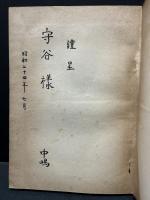 謹呈
守谷様
中嶋
昭和二十四年七月